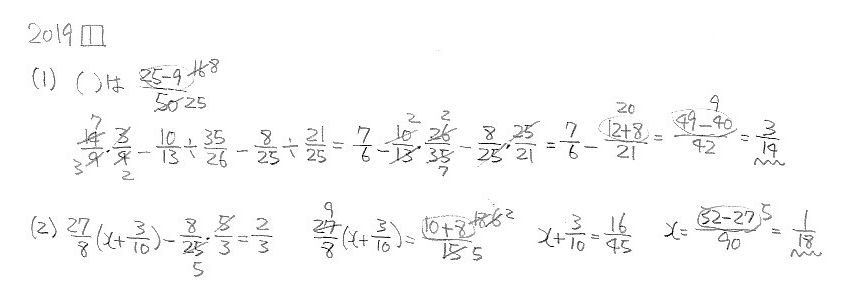 2019 1
(1) ( )は (25-9)/50 16 8 25
14/9・3/4 - 10/13 ÷ 35/26 - 8/25 ÷ 21/25 = 7/6 - 10/13・26/35 - 8/25・25/21 = 7/6 - (12+8)/21 = (49-40)/42 = 3/14
(2) 27/8 (x+3/10) - 8/25・5/3 = 2/3 27/8 (x+3/10) = (10+8)/15 x+3/10 = 16/45 x = (32-27)/90 = 1/18